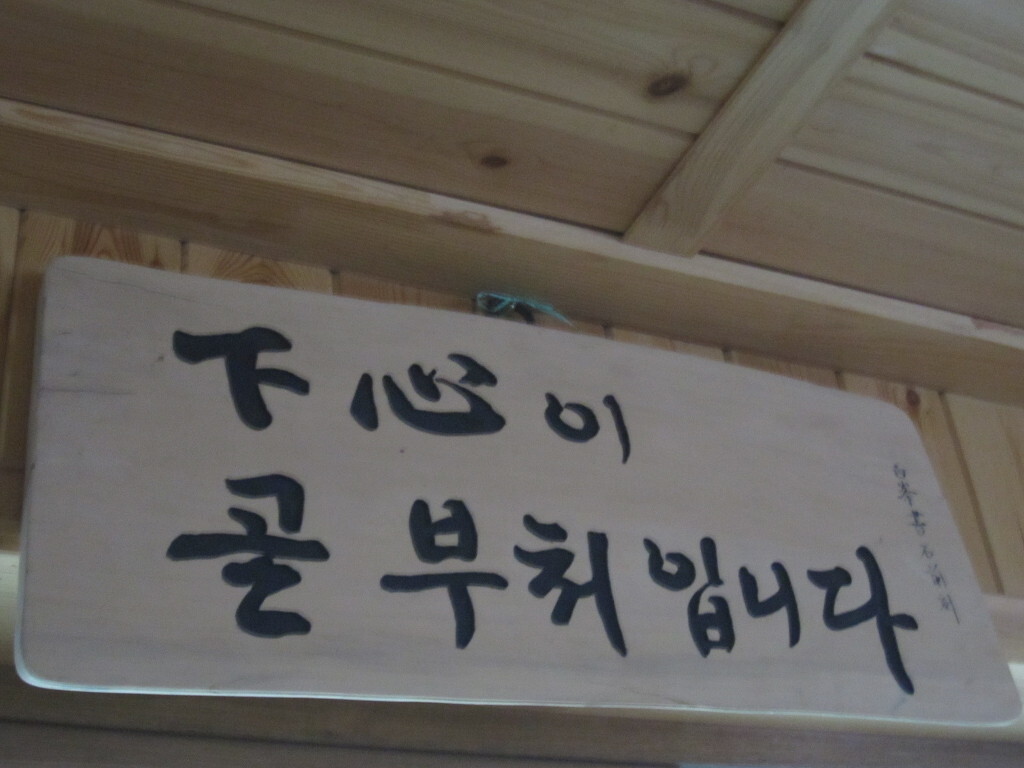 下心이
골 부처입니다